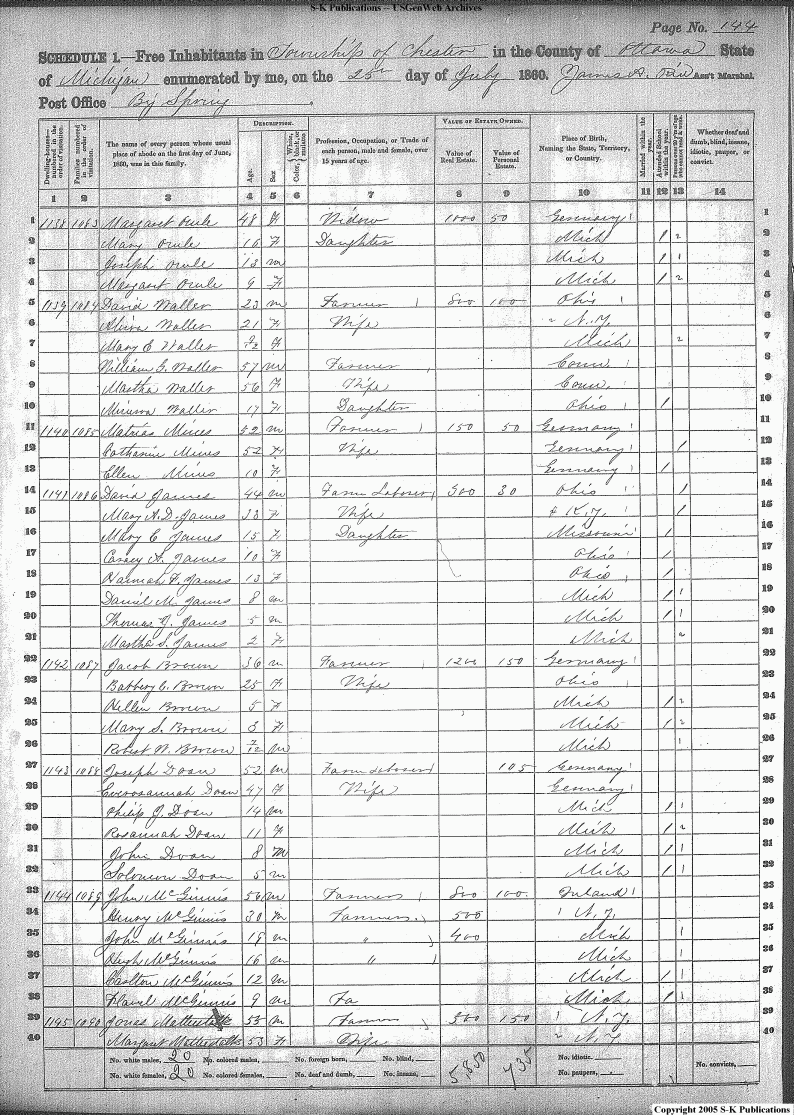 S-K Publications – USGenWeb Archives
Page No. 144
SCHEDULE 1.—Free Inhabitants in Township of Chester in the County of Ottawa State
of Michigan enumerated by me, on the 25 day of July 1860. James Ass't Marshal.
Post Office Big Spring
DESCRIPTION. VALUE OF ESTATE OWNED.
Dwelling-houses—numbered in the order of visitation. Families numbered in the order of visitation. The name of every person whose usual place of abode on the first day of June, 1860, was in this family. Age. Sex. Color, White, black, or mulatto. Profession, Occupation, or Trade of each person, male and female, over 15 years of age. Value of Real Estate. Value of Personal Estate. Place of Birth, Naming the State, Territory, or Country. Married within the year. Attended School within the year. Persons over 20 y'rs of age who cannot read & write. Whether deaf and dumb, blind, insane, idiotic, pauper, or convict.
1 2 3 4 5 6 7 8 9 10 11 12 13 14
1 1138 1083 Margaret 48 F Widow 1000 50 Germany 1
2 Mary 16 F Daughter Mich 1 2 2
3 Joseph 13 m Mich 1 1 3
4 Margaret 9 F Mich 1 2 4
5 1139 1084 David Waller 23 m Farmer 800 100 Ohio 5
6 Waller 21 F Wife N.Y. 6
7 Mary E Waller F Mich 2 7
8 William G. Waller 57 m Farmer Conn 8
9 Martha Waller 56 F Wife Conn 9
10 Minerva Waller 17 F Daughter Ohio 1 10
11 1140 1085 Matrias Mines 52 m Farmer 150 50 Germany 11
12 Catharine Mines 52 F Wife Germany 1 12
13 Ellen Mines 10 F Germany 1 13
14 1141 1086 David James 44 m Farm Laborer 300 30 Ohio 1 14
15 Mary A.D. James 33 F Wife K.Y. 1 15
16 Mary C James 15 F Daughter Missouri 1 16
17 A. James 10 F Ohio 1 17
18 Hannah F. James 13 F Ohio 1 18
19 Daniel M. James 8 m Mich 1 1 19
20 Thomas J. James 5 m Mich 1 1 20
21 Martha S. James 2 F Mich 21
22 1142 1087 Jacob Brown 36 m Farmer 1200 150 Germany 22
23 C. Brown 25 F Wife Ohio 23
24 Hellen Brown 5 F Mich 1 2 24
25 Mary S. Brown 3 F Mich 1 2 25
26 Robert W. Brown 7/12 m Mich 1 26
27 1143 1088 Joseph Doan 52 m Farm Laborer 105 Germany 27
28 Doan 47 F Wife Germany 28
29 Philip J. Doan 14 m Mich 1 1 29
30 Rosannah Doan 11 F Mich 1 2 30
31 John Doan 8 m Mich 1 1 31
32 Solomon Doan 5 m Mich 1 1 32
33 1144 1089 John McGinnis 56 m Farmer 800 100 Ireland 33
34 Henry McGinnis 30 m Farmer 500 N.Y. 34
35 John McGinnis 19 m " 400 Mich 1 35
36 Hugh McGinnis 16 m " Mich 1 36
37 Carlton McGinnis 12 m Mich 1 1 37
38 McGinnis 9 m Fa Mich 1 1 38
39 1145 1090 Jonas 55 m Farmer 300 150 N.Y. 39
40 Margaret 53 F Wife N.Y. 40
No. white males, 20 No. colored males, No. foreign born, No. blind, 5,850 735 No. idiotic, No. convicts,
No. white females, 20 No. colored females, No. deaf and dumb, No. insane, No. paupers,
Copyright 2005 S-K Publications